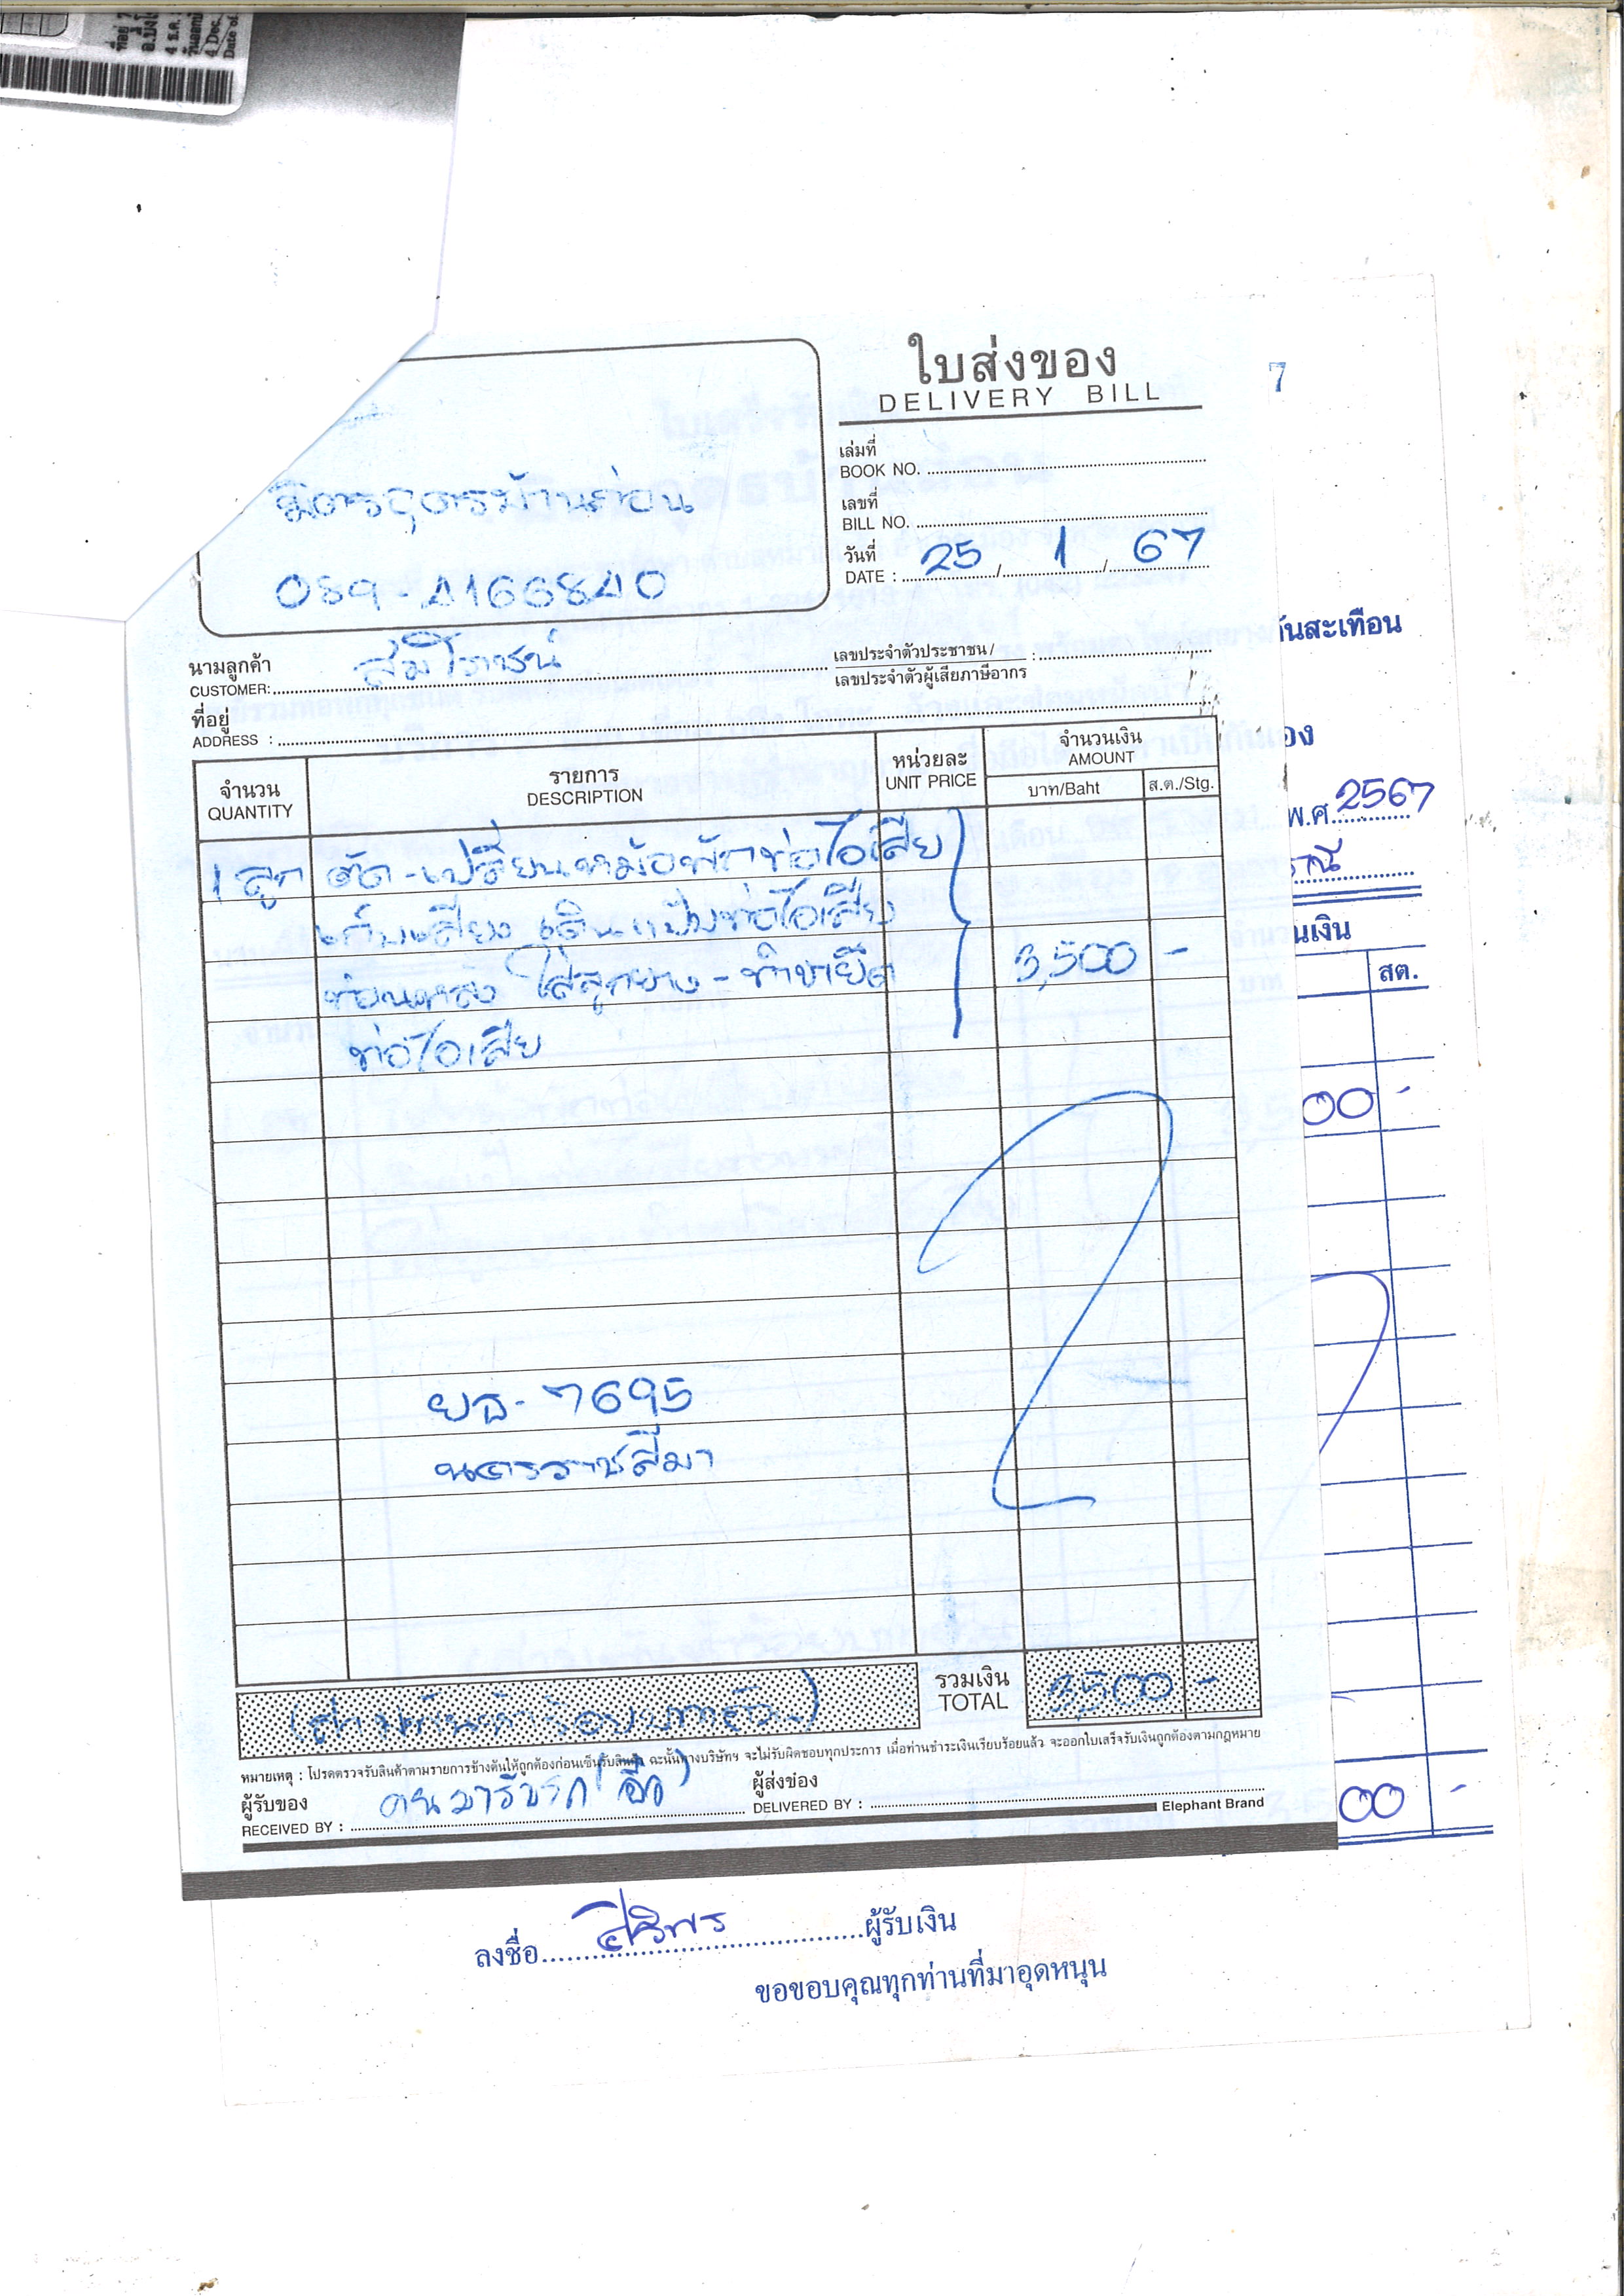 ใบส่งของ
DELIVERY BILL
7
มิตรอุดรบ้านค่อน
089-4166840
เล่มที่
BOOK NO.
เลขที่
BILL NO.
วันที่
DATE : 25 / 1 / 67
นามลูกค้า
CUSTOMER: สมโภชน์
เลขประจำตัวประชาชน / :
เลขประจำตัวผู้เสียภาษีอากร
ที่อยู่
ADDRESS :
กันสะเทือน
พ.ศ. 2567
จำนวน
QUANTITY
รายการ
DESCRIPTION
หน่วยละ
UNIT PRICE
จำนวนเงิน
AMOUNT
บาท/Baht
ส.ต./Stg.
นเงิน
สต.
1 ลูก ตัด-เปลี่ยนหม้อพักท่อไอเสีย
เก็บเสียง เดินแป๊บท่อไอเสีย
ท่อนหลัง ใส่ลูกยาง-ทำขายึด 3,500 -
ท่อไอเสีย
00 -
ยฉ-7695
นครราชสีมา
(สามพันห้าร้อยบาทถ้วน)
รวมเงิน
TOTAL
3,500 -
หมายเหตุ : โปรดตรวจรับสินค้าตามรายการข้างต้นให้ถูกต้องก่อนเซ็นรับสินค้า ฉะนั้นทางบริษัทฯ จะไม่รับผิดชอบทุกประการ เมื่อท่านชำระเงินเรียบร้อยแล้ว จะออกใบเสร็จรับเงินถูกต้องตามกฎหมาย
ผู้รับของ
RECEIVED BY : คนมารับรถ
ผู้ส่งของ
DELIVERED BY :
Elephant Brand
00 -
ลงชื่อ ศิริพร ผู้รับเงิน
ขอขอบคุณทุกท่านที่มาอุดหนุน